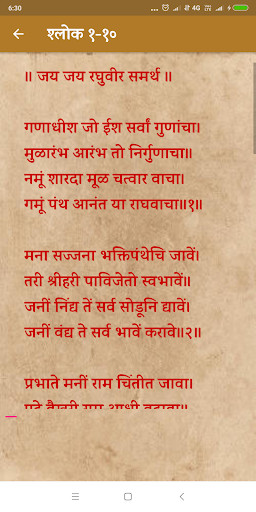 6:30
4G
श्लोक १-१०
॥ जय जय रघुवीर समर्थ ॥
गणाधीश जो ईश सर्वां गुणांचा।
मुळारंभ आरंभ तो निर्गुणाचा॥
नमूं शारदा मूळ चत्वार वाचा।
गमूं पंथ आनंत या राघवाचा॥१॥
मना सज्जना भक्तिपंथेचि जावें।
तरी श्रीहरी पाविजेतो स्वभावें॥
जनीं निंद्य तें सर्व सोडूनि द्यावें।
जनीं वंद्य ते सर्व भावें करावे॥२॥
प्रभाते मनीं राम चिंतीत जावा।